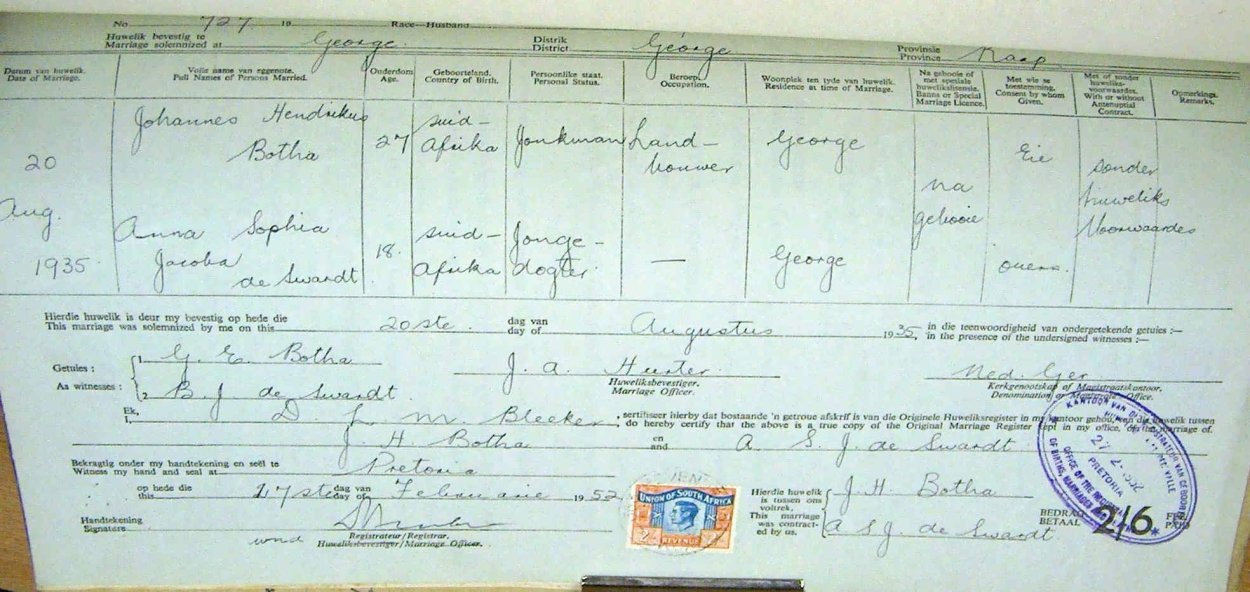 No 727 19 Race—Husband
Huwelik bevestig te
Marriage solemnized at George. Distrik District George Provinsie Province Kaap.
Datum van huwelik. Date of Marriage.
Volle name van eggenote. Full Names of Persons Married.
Ouderdom Age.
Geboorteland. Country of Birth.
Persoonlike staat. Personal Status.
Beroep. Occupation.
Woonplek ten tyde van huwelik. Residence at time of Marriage.
Na gebooie of met spesiale huwelikslisensie. Banns or Special Marriage Licence.
Met wie se toestemming. Consent by whom Given.
Met of sonder huweliks-voorwaardes. With or without Antenuptial Contract.
Opmerkings. Remarks.
20 Aug. 1935.
Johannes Hendrikus Botha
27
Suid-Afrika
Jonkman
Landbouwer
George
Eie
Anna Sophia Jacoba de Swardt
18.
Suid-Afrika
Jonge-dogter
—
George
ouers.
na gebooie
sonder huweliks Voorwaardes
Hierdie huwelik is deur my bevestig op hede die
This marriage was solemnized by me on this 20ste. dag van day of Augustus 1935, in die teenwoordigheid van ondergetekende getuies :—
in the presence of the undersigned witnesses :—
Getuies :
As witnesses :
1 G. E. Botha
2 B. J de Swardt
J. A. Hurter.
Huweliksbevestiger.
Marriage Officer.
Ned. Ger
Kerkgenootskap of Magistraatskantoor.
Denomination or Magisterial Office.
Ek,
I, D J M Bleeker, sertifiseer hierby dat bostaande 'n getroue afskrif is van die Originele Huweliksregister in my kantoor gehou, van die huwelik tussen
do hereby certify that the above is a true copy of the Original Marriage Register kept in my office, of the marriage of.
J H Botha en and A S J. de Swardt
Bekragtig onder my handtekening en seël te
Witness my hand and seal at Pretoria
op hede die
this 27ste dag van day of Februarie 1952.
Handtekening
Signature
wnd Registrateur/Registrar.
Huweliksbevestiger/Marriage Officer.
UNION OF SOUTH AFRICA
REVENUE
Hierdie huwelik is tussen ons voltrek.
This marriage was contracted by us.
J. H. Botha
A S J. de Swardt
BEDRAG
BETAAL 2/6 FEE
PAID
PRETORIA